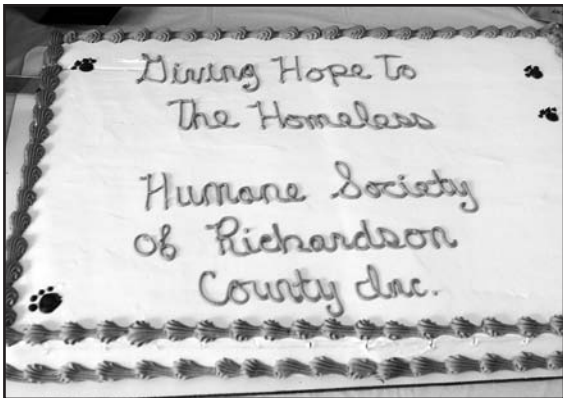 Giving Hope To
The Homeless
Humane Society
of Richardson
County Inc.